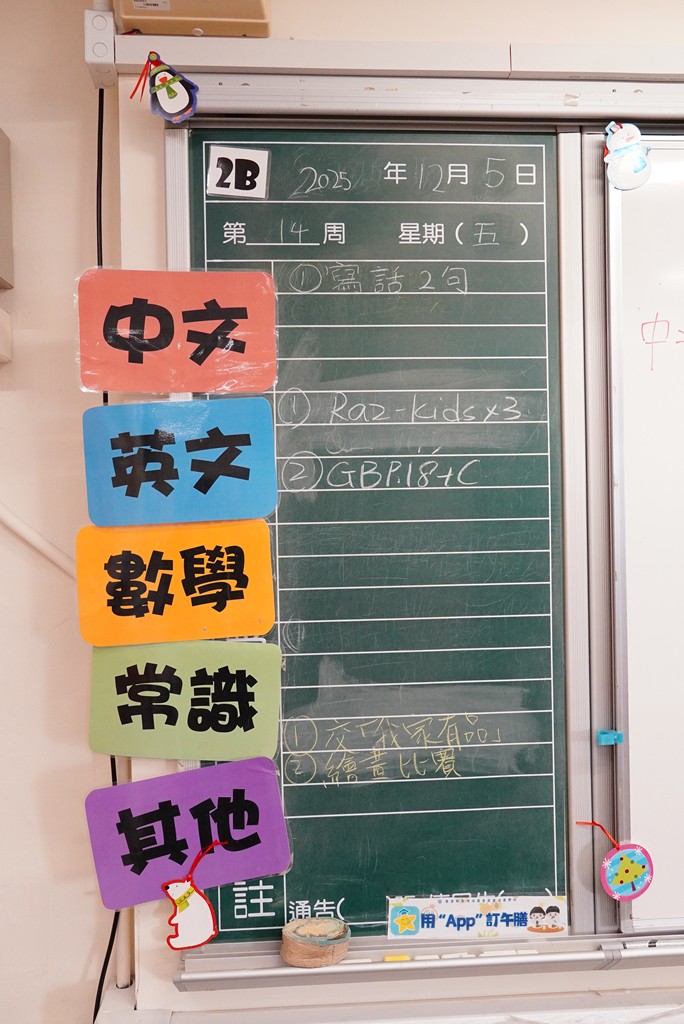 2B 2025 年 12 月 5 日
第 14 周 星期 ( 五 )
中文
① 寫話2句
英文
① Raz-kids x3
② GBP.18+C
數學
常識
① 交「我家有品」
② 繪畫比賽
其他
註 通告(
用 "App" 訂午膳
中